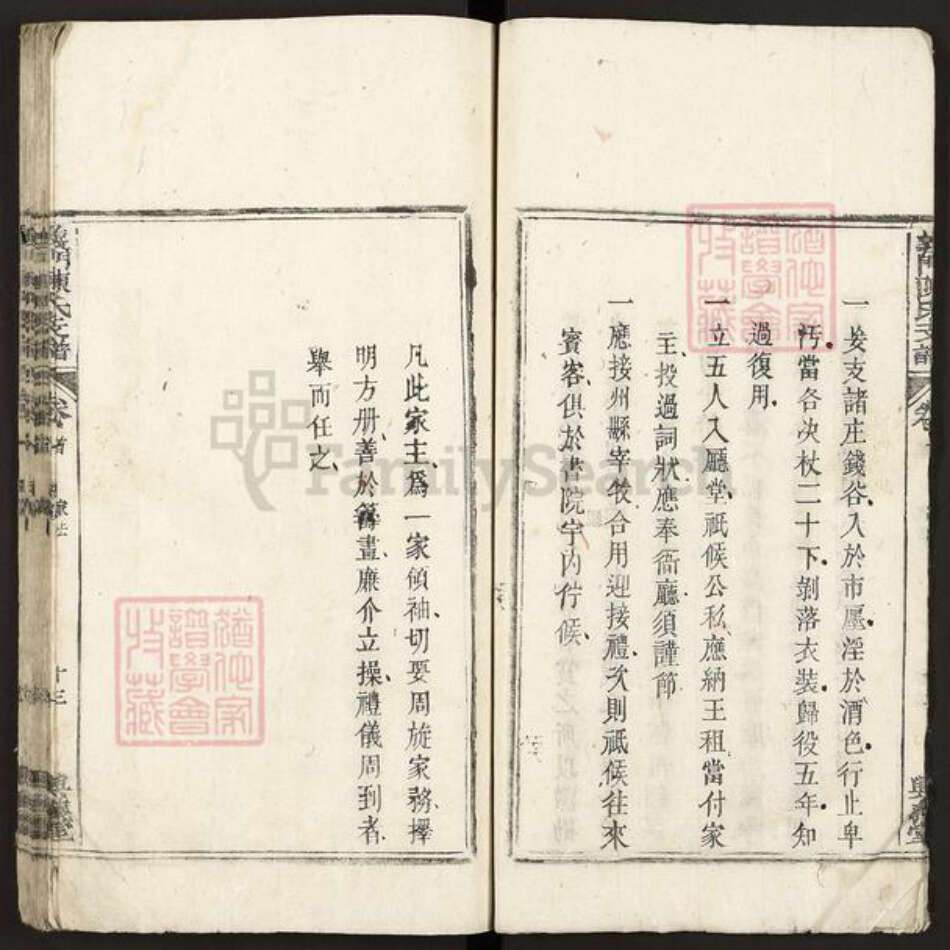 一妄支諸庄錢谷入於市廛淫於酒色行止卑
汚當各决杖二十下剥落衣裝歸役五年知
過復用
一立五人入廳堂祇候公私應納王租當付家
主投過詞狀應奉衙廳須謹節
一應接州縣宰牧合用迎接禮次則祇候往來
賓客俱於書院宇内佇候
凡此家主爲一家領袖切要周旋家務擇
明方册善於籌畫廉介立操禮儀周到者
舉而任之
義門陳氏支譜
卷首
十三
FamilySearch